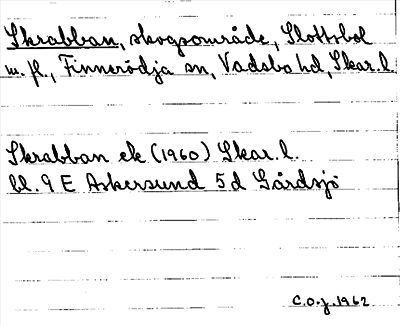 Skrabban, skogsområde, Slottsbol
m. fl., Finnerödja sn, Vadsbo hd, Skar. l.
Skrabban ek (1960) Skar. l.
bl. 9 E Askersund 5d Gårdsjö
C.O.J. 1962